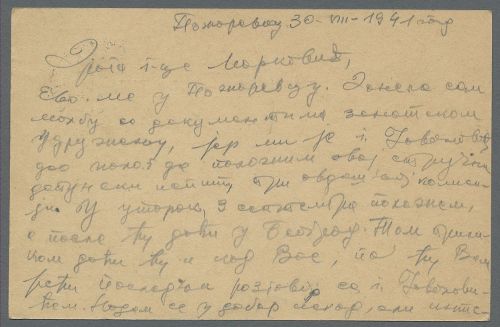 Пожаревац 30-VIII-1941 год
Драга г-це Марковић,
Ево ме у Пожаревцу. Однела сам
молбу са документима занатском
удружењу, јер ми је г. Јовановић
дао налог да положим овај стручни
допунски испит при овдашњој комиси-
ји. У уторак, 2 септембра полажем,
а после ћу доћи у Београд. Том прили-
ком доћи ћу и код Вас, па ћу Вам
рећи последњи разговор са г. Јованови-
ћем. Надам се у добар исход, али